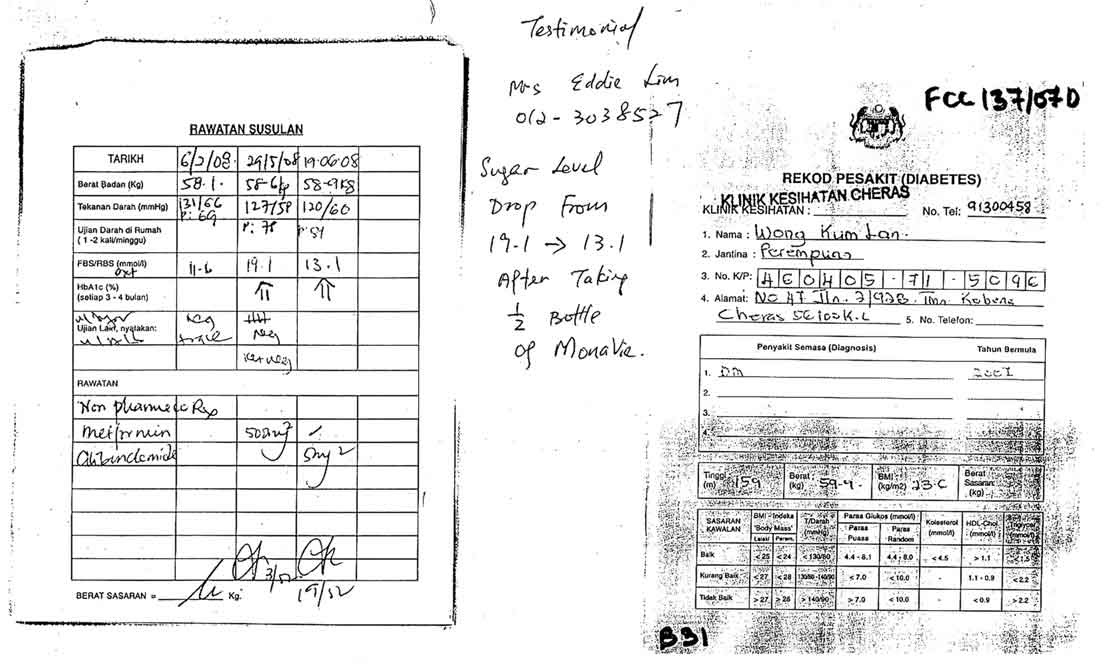 RAWATAN SUSULAN
TARIKH 6/2/08. 29/5/08 19.06.08
Berat Badan (Kg) 58.1. 58.6kg 58.9kg
Tekanan Darah (mmHg) 131/66 127/58 120/60
P: 69 P: 78 P: 54
Ujian Darah di Rumah
(1 -2 kali/minggu)
FBS/RBS (mmol/l) 11.6 19.1 13.1
HbA1c (%)
(setiap 3 - 4 bulan)
Ujian Lain, nyatakan: Neg
trace Neg
RAWATAN
Non pharmaco Rx
Metformin 500mg
Glibenclamide 5mg
19/12
BERAT SASARAN = Kg.
Testimonial
Mrs Eddie Lim
012-3038527
Sugar Level
Drop From
19.1 → 13.1
After Taking
1/2 Bottle
of MonaVie.
FCC 137/07D
REKOD PESAKIT (DIABETES)
KLINIK KESIHATAN CHERAS
KLINIK KESIHATAN : No. Tel: 91300458
1. Nama : Wong Kum Lan.
2. Jantina : Perempuan
3. No. K/P: 460405-71-5096
4. Alamat: No 47 Jln. 2/92B. Tmn. Kobena
Cheras 56100 K.L 5. No. Telefon:
Penyakit Semasa (Diagnosis) Tahun Bermula
1. DM 2007
2.
3.
4.
Tinggi (m) 159 Berat (kg) 59.4. BMI (kg/m2) 23.6 Berat Sasaran (kg)
SASARAN KAWALAN BMI - Indeks 'Body Mass' T/Darah (mmHg) Paras Glukos (mmol/l) Kolesterol (mmol/l) HDL-Chol (mmol/l)
Lelaki Peram. Paras Puasa Paras Random
Baik <25 <24 <130/80 4.4 - 6.1 4.4 - 8.0 <4.5 >1.1 <1.5
Kurang Baik <27 <26 130/80-140/90 ≤7.0 <10.0 - 1.1 - 0.9 <2.2
Tidak Baik >27 >26 >140/90 >7.0 <10.0 - <0.9 >2.2
B31